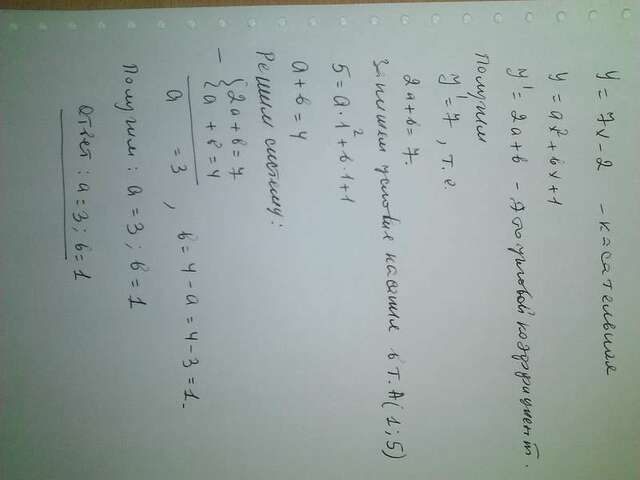 y = 7x - 2 - касательная
y = ax² + bx + 1
y' = 2a + b - это угловой коэффициент.
Получим
y' = 7, т.е.
2a + b = 7.
Запишем условия касания в т. A(1; 5)
5 = a · 1² + b · 1 + 1
a + b = 4
Решим систему:
- { 2a + b = 7
{ a + b = 4
a = 3, b = 4 - a = 4 - 3 = 1.
Получим: a = 3; b = 1
Ответ: a = 3; b = 1